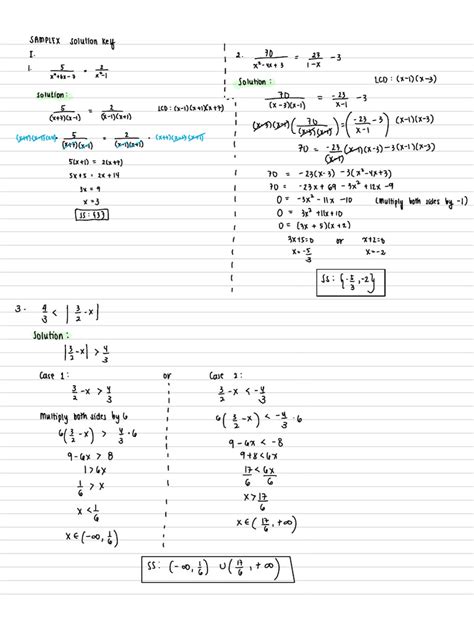 SAMPLEX Solution Key
I.
1. 5/(x²+6x-7) = 2/(x²-1)
Solution:
5/((x+7)(x-1)) = 2/((x-1)(x+1)) LCD: (x-1)(x+1)(x+7)
(x+7)(x-1)(x+1) · 5/((x+7)(x-1)) = 2/((x-1)(x+1)) · (x+7)(x-1)(x+1)
5(x+1) = 2(x+7)
5x+5 = 2x+14
3x = 9
x = 3
SS: {3}
2. 70/(x²-4x+3) = 23/(1-x) - 3
Solution: LCD: (x-1)(x-3)
70/((x-3)(x-1)) = -23/(x-1) - 3
(x-3)(x-1) (70/((x-3)(x-1))) = (-23/(x-1) - 3) (x-1)(x-3)
70 = -23/(x-1) (x-1)(x-3) - 3(x-1)(x-3)
70 = -23(x-3) - 3(x²-4x+3)
70 = -23x + 69 - 3x² + 12x - 9
0 = -3x² - 11x - 10 (Multiply both sides by -1)
0 = 3x² + 11x + 10
0 = (3x + 5)(x + 2)
3x+5=0 or x+2=0
x = -5/3 x = -2
SS: {-5/3, -2}
3. 4/3 < |3/2 - x|
Solution:
|3/2 - x| > 4/3
Case 1: or Case 2:
3/2 - x > 4/3 3/2 - x < -4/3
Multiply both sides by 6
6(3/2 - x) > 4/3 · 6 6(3/2 - x) < -4/3 · 6
9 - 6x > 8 9 - 6x < -8
1 > 6x 9 + 8 < 6x
1/6 > x 17/6 < 6x/6
x < 1/6 x > 17/6
x ∈ (-∞, 1/6) x ∈ (17/6, +∞)
SS: (-∞, 1/6) ∪ (17/6, +∞)